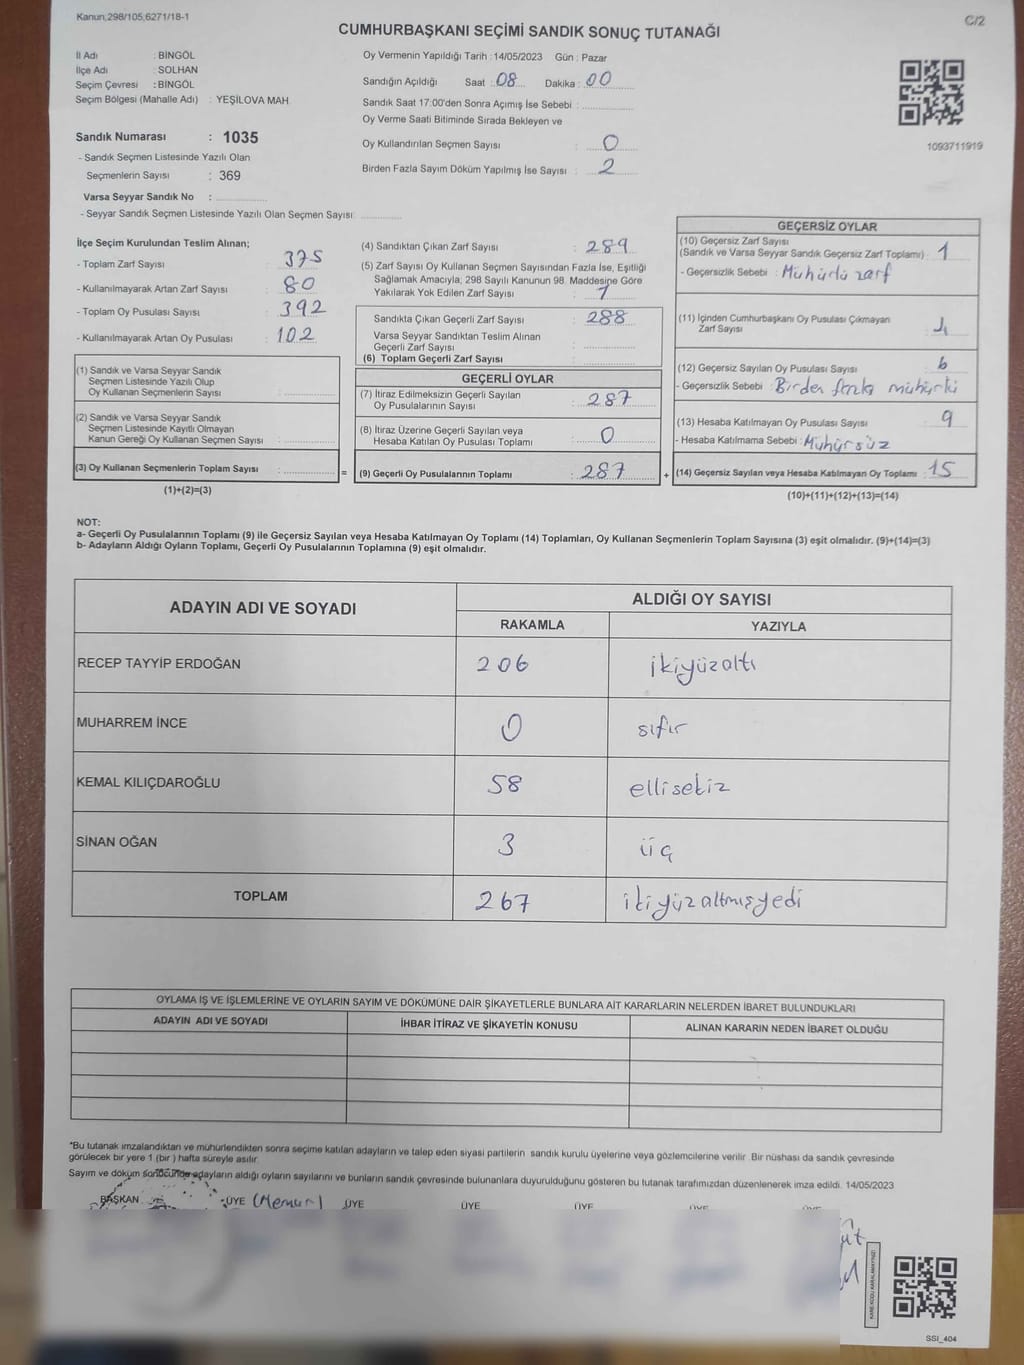 Kanun;298/105,6271/18-1
C/2
CUMHURBAŞKANI SEÇİMİ SANDIK SONUÇ TUTANAĞI
İl Adı : BİNGÖL
İlçe Adı : SOLHAN
Seçim Çevresi : BİNGÖL
Seçim Bölgesi (Mahalle Adı) : YEŞİLOVA MAH.
Sandık Numarası : 1035
- Sandık Seçmen Listesinde Yazılı Olan
Seçmenlerin Sayısı : 369
Varsa Seyyar Sandık No :
- Seyyar Sandık Seçmen Listesinde Yazılı Olan Seçmen Sayısı:
Oy Vermenin Yapıldığı Tarih : 14/05/2023 Gün : Pazar
Sandığın Açıldığı Saat : 08 Dakika : 00
Sandık Saat 17:00'den Sonra Açımış İse Sebebi :
Oy Verme Saati Bitiminde Sırada Bekleyen ve
Oy Kullandırılan Seçmen Sayısı : 0
Birden Fazla Sayım Döküm Yapılmış İse Sayısı : 2
1093711919
İlçe Seçim Kurulundan Teslim Alınan;
- Toplam Zarf Sayısı : 375
- Kullanılmayarak Artan Zarf Sayısı : 80
- Toplam Oy Pusulası Sayısı : 392
- Kullanılmayarak Artan Oy Pusulası : 102
(1) Sandık ve Varsa Seyyar Sandık
Seçmen Listesinde Yazılı Olup
Oy Kullanan Seçmenlerin Sayısı :
(2) Sandık ve Varsa Seyyar Sandık
Seçmen Listesinde Kayıtlı Olmayan
Kanun Gereği Oy Kullanan Seçmen Sayısı :
(3) Oy Kullanan Seçmenlerin Toplam Sayısı :
(1)+(2)=(3)
=
(4) Sandıktan Çıkan Zarf Sayısı : 289
(5) Zarf Sayısı Oy Kullanan Seçmen Sayısından Fazla İse, Eşitliği
Sağlamak Amacıyla, 298 Sayılı Kanunun 98. Maddesine Göre
Yakılarak Yok Edilen Zarf Sayısı : 1
Sandıkta Çıkan Geçerli Zarf Sayısı : 288
Varsa Seyyar Sandıktan Teslim Alınan
Geçerli Zarf Sayısı :
(6) Toplam Geçerli Zarf Sayısı :
GEÇERLİ OYLAR
(7) İtiraz Edilmeksizin Geçerli Sayılan
Oy Pusulalarının Sayısı : 287
(8) İtiraz Üzerine Geçerli Sayılan veya
Hesaba Katılan Oy Pusulası Toplamı : 0
(9) Geçerli Oy Pusulalarının Toplamı : 287
+
GEÇERSİZ OYLAR
(10) Geçersiz Zarf Sayısı
(Sandık ve Varsa Seyyar Sandık Geçersiz Zarf Toplamı) : 1
- Geçersizlik Sebebi : Mühürlü zarf
(11) İçinden Cumhurbaşkanı Oy Pusulası Çıkmayan
Zarf Sayısı :
(12) Geçersiz Sayılan Oy Pusulası Sayısı :
- Geçersizlik Sebebi : Birden fazla mühürlü
(13) Hesaba Katılmayan Oy Pusulası Sayısı : 9
- Hesaba Katılmama Sebebi : Mühürsüz
(14) Geçersiz Sayılan veya Hesaba Katılmayan Oy Toplamı : 15
(10)+(11)+(12)+(13)=(14)
NOT:
a- Geçerli Oy Pusulalarının Toplamı (9) ile Geçersiz Sayılan veya Hesaba Katılmayan Oy Toplamı (14) Toplamları, Oy Kullanan Seçmenlerin Toplam Sayısına (3) eşit olmalıdır. (9)+(14)=(3)
b- Adayların Aldığı Oyların Toplamı, Geçerli Oy Pusulalarının Toplamına (9) eşit olmalıdır.
ADAYIN ADI VE SOYADI
ALDIĞI OY SAYISI
RAKAMLA
YAZIYLA
RECEP TAYYİP ERDOĞAN 206 ikiyüzaltı
MUHARREM İNCE 0 sıfır
KEMAL KILIÇDAROĞLU 58 ellisekiz
SİNAN OĞAN 3 üç
TOPLAM 267 ikiyüzaltmışyedi
OYLAMA İŞ VE İŞLEMLERİNE VE OYLARIN SAYIM VE DÖKÜMÜNE DAİR ŞİKAYETLERLE BUNLARA AİT KARARLARIN NELERDEN İBARET BULUNDUKLARI
ADAYIN ADI VE SOYADI
İHBAR İTİRAZ VE ŞİKAYETİN KONUSU
ALINAN KARARIN NEDEN İBARET OLDUĞU
*Bu tutanak imzalandıktan ve mühürlendikten sonra seçime katılan adayların ve talep eden siyasi partilerin sandık kurulu üyelerine veya gözlemcilerine verilir. Bir nüshası da sandık çevresinde
görülecek bir yere 1 (bir) hafta süreyle asılır.
Sayım ve döküm sonucunda adayların aldığı oyların sayılarını ve bunların sandık çevresinde bulunanlara duyurulduğunu gösteren bu tutanak tarafımızdan düzenlenerek imza edildi. 14/05/2023
BAŞKAN ÜYE (Memur) ÜYE ÜYE ÜYE ÜYE ÜYE
SSI_404